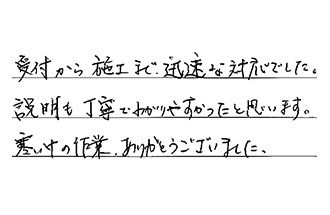 受付から施工まで、迅速な対応でした。
説明も丁寧でわかりやすかったと思います。
寒い中の作業、ありがとうございました。